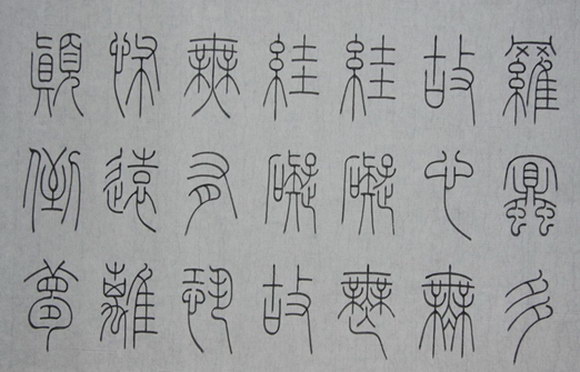 羅蜜多
故心無
絓礙無
絓礙故
無有恐
怖遠離
顛倒夢